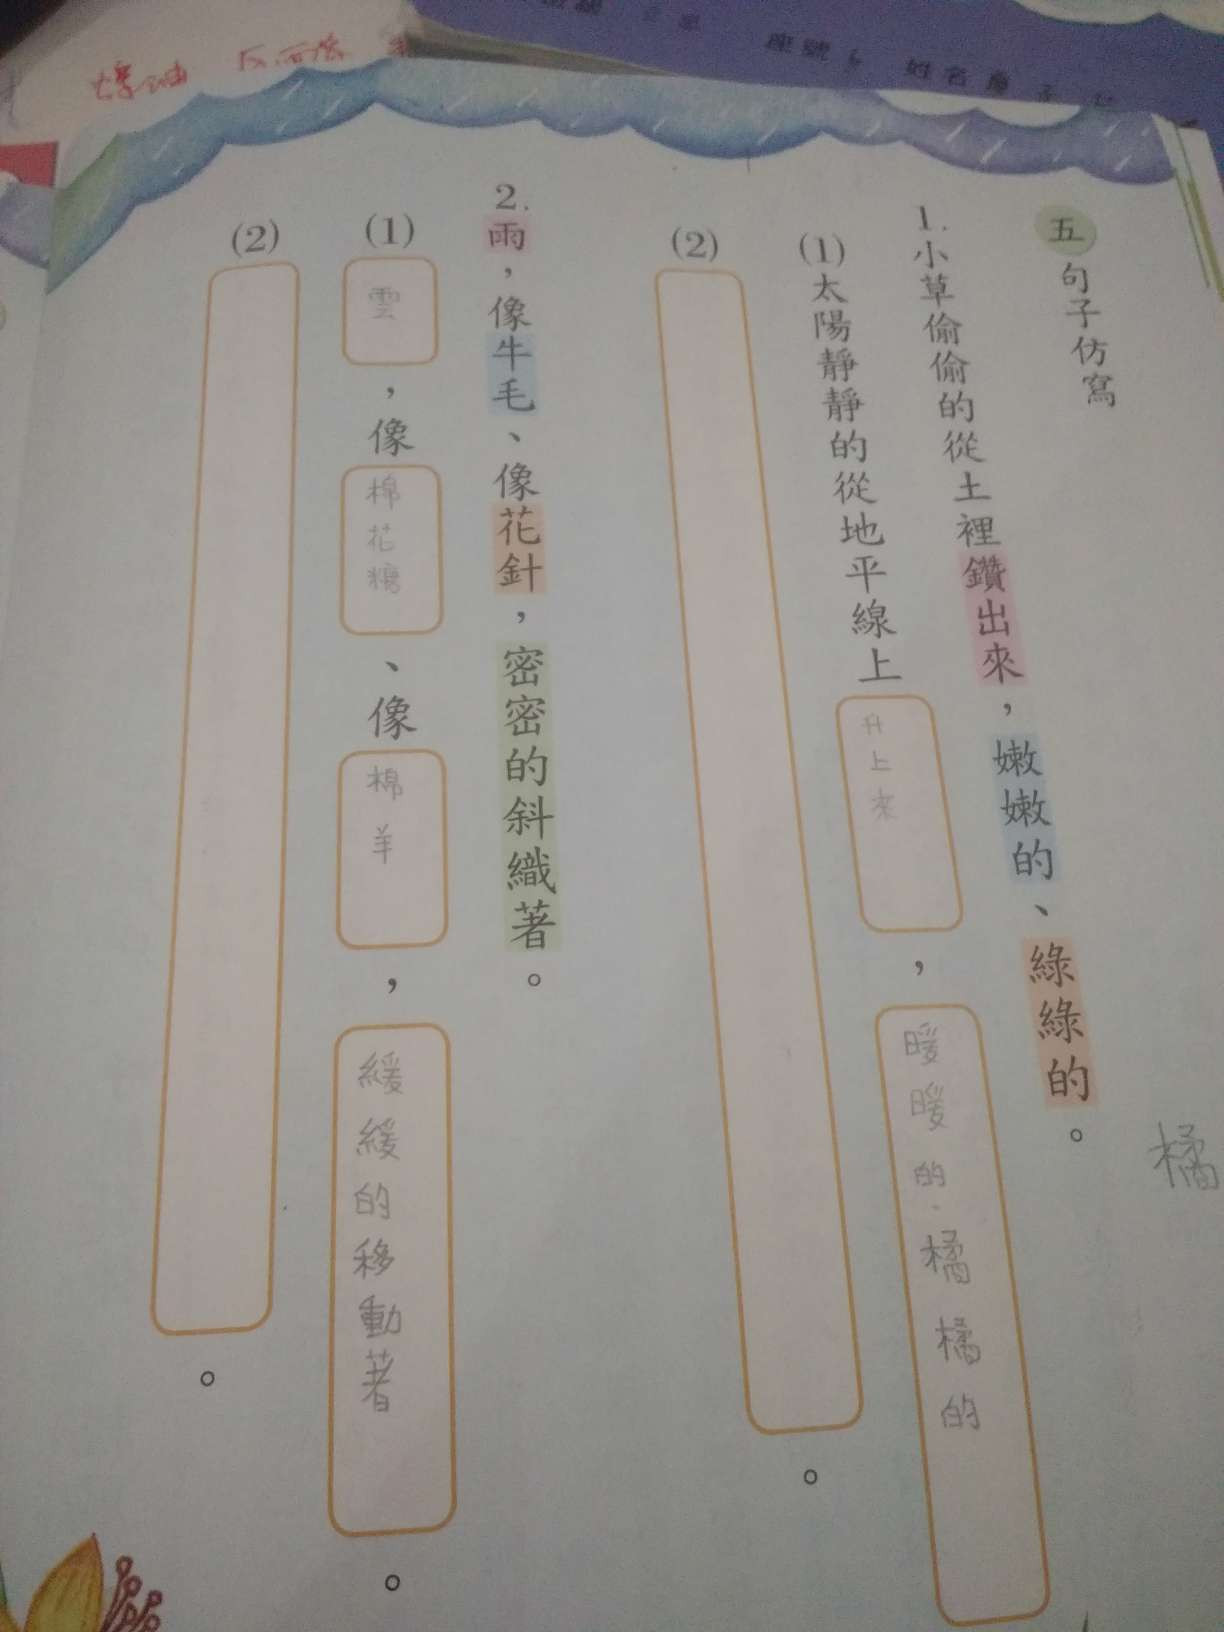 座號6 姓名
五 句子仿寫
1.小草偷偷的從土裡鑽出來，嫩嫩的、綠綠的。
橘
(1)太陽靜靜的從地平線上升上來，暖暖的、橘橘的
(2)。
2.雨，像牛毛、像花針，密密的斜織著。
(1)雲，像棉花糖、像棉羊，緩緩的移動著。
(2)。